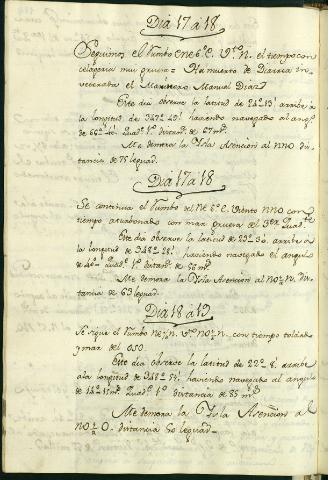 Dia 17 á 18
Seguimos el Rumbo ENE 6º E. Vto N. el tiempo con
celageria muy gruesa = Ha muerto de Diarrea in-
veterada el Marinero Manuel Diaz
Este dia observe la latitud de 24º 13' arribe à
la longitud de 347º 49' haviendo navegado al angº
de 66º 40' Quadº 1º distanª de 67 mª
Me demora la Isla Asencion al NNO dis-
tancia de 75 leguas.
Dia 17 á 18
Se continua el Rumbo del NE 6º E. Viento NNO con
tiempo acubonado con mar gruesa del 3er Quadte
Este dia observe la latitud de 23º 30' arribe a
la longitud de 348º 28' haviendo navegado el angulo
de 40º Quadº 1º distanª de 56 mª
Me demora la Isla Asencion al NO¼N. Dis-
tancia de 63 leguas.
Dia 18 à 19
Se sigue el Rumbo NE¼N. Vto NO¼N. con tiempo toldado
y mar del OSO.
Este dia observe la latitud de 22º 8' arribe
a la longitud de 348º 51' haviendo navegado al angulo
de 14º 15 mª Quadº 1º distancia de 85 mª
Me demora la Isla Asencion al
NO¼O. distancia 60 leguas